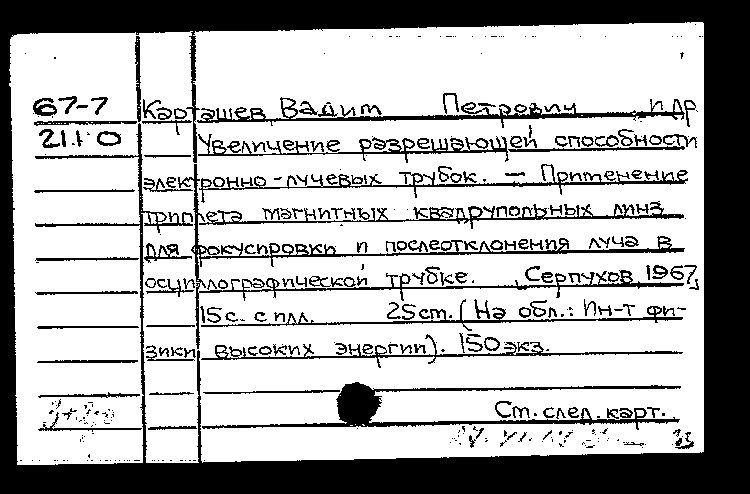 67-7 Карташев, Вадим Петрович и др.
21.1 0 Увеличение разрешающей способности
электронно-лучевых трубок. — Применение
триплета магнитных квадрупольных линз
для фокусировки и послеотклонения луча в
осциллографической трубке. Серпухов, 1967,
15 с. с илл. 25 cm. (На обл.: Ин-т фи-
зики высоких энергии). 150 экз.
См. след. карт.